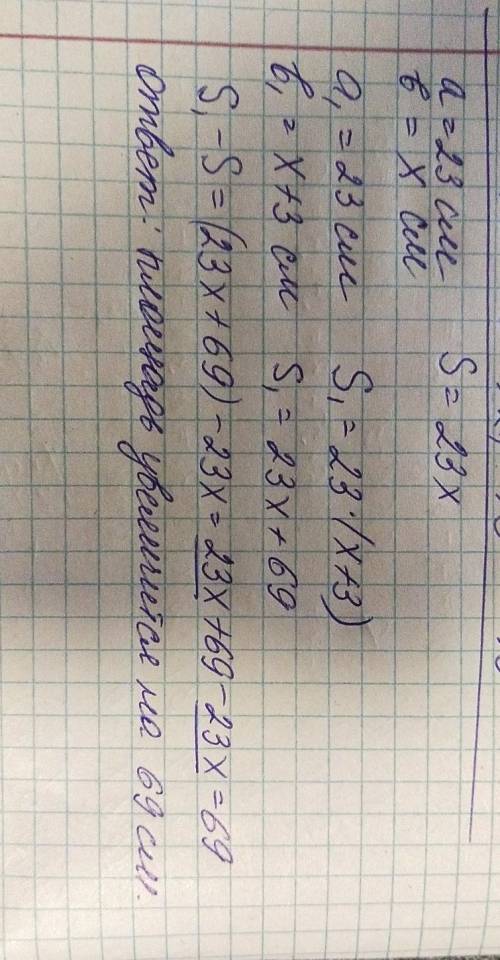 a = 23 см
в = x см S = 23x
a₁ = 23 см S₁ = 23·(x+3)
в₁ = x+3 см S₁ = 23x + 69
S₁ - S = (23x + 69) - 23x = 23x + 69 - 23x = 69
Ответ: площадь увеличится на 69 см.